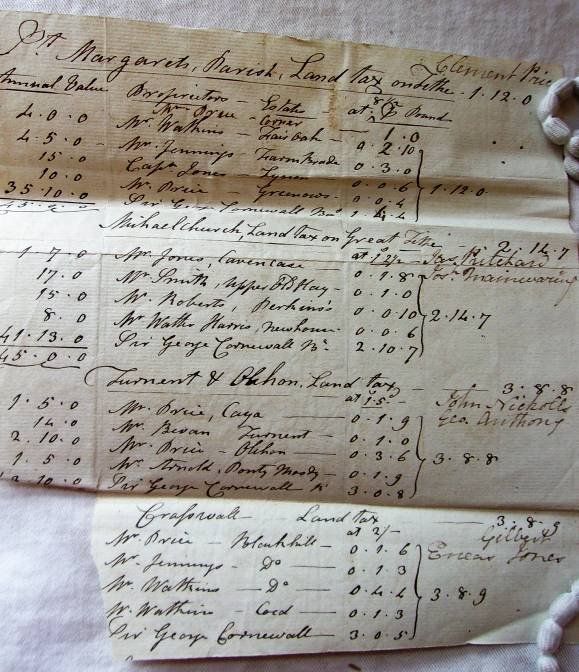 St Margarets, Parish, Land tax on Tithe. 1. 12. 0 Clement Price
Annual Value Proprietors — Estate at 8½ ⅌ Pound
Mr Price — Corner 1. 0
4. 0. 0 Mr. Watkins — Fair Oak 0. 2. 10
4. 5. 0 Mr. Jennings 0. 3. 0
15. 0 Captn Jones 0. 0. 6 1. 12. 0
10. 0 Mr. Price — 0. 0. 4
35. 10. 0 Sir G. Cornewall Bt 1. 4. 4
45. 0. 0
Michaelchurch, Land tax on Great Tithe — 2. 14. 7
1. 7. 0 Mr. Jones, at 1/2½ — Jas. Pritchard
17. 0 Mr. Smith, Upper Old Hay — 0. 1. 8 Jos. Mainwaring
15. 0 Mr. Roberts, Perkins's 0. 1. 0
8. 0 Mr. Walter Harris, Newhouse 0. 0. 10 2. 14. 7
41. 13. 0 Sir George Cornewall Bt 0. 0. 6
45. 0. 0 2. 10. 7
Turnent & Olchon, Land tax — 3. 8. 8
at 1. 5 — John Nicholls
1. 5. 0 Mr. Price, Caya — 0. 1. 9 Geo. Anthony
14. 0 Mr. Bevan Turnent — 0. 1. 0
2. 10. 0 Mr. Price — Olchon — 0. 3. 6 3. 8. 8
1. 5. 0 Mr. Arnold, Ponty — 0. 1. 9
10. 0 Sir George Cornewall Bt 3. 0. 8
Crasswall — Land tax — 3. 8. 9
at 2/- Gilbert
Mr. Price — Blackhill — 0. 1. 6 Eneas Jones
Mr. Jennings — Do — 0. 1. 3
Mr. Watkins — Do — 0. 4. 4 3. 8. 9
Mr. Watkins — Coed — 0. 1. 3
Sir George Cornewall — 3. 0. 5